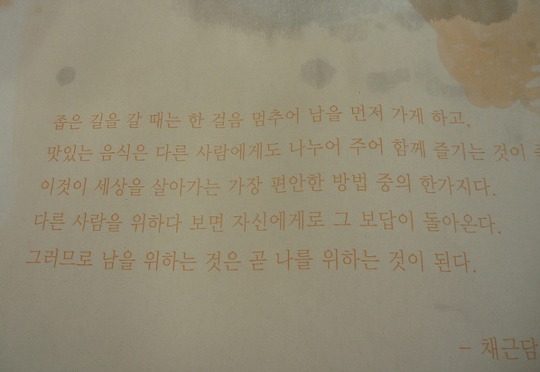 좁은 길을 갈 때는 한 걸음 멈추어 남을 먼저 가게 하고,
맛있는 음식은 다른 사람에게도 나누어 주어 함께 즐기는 것이
이것이 세상을 살아가는 가장 편안한 방법 중의 한가지다.
다른 사람을 위하다 보면 자신에게로 그 보답이 돌아온다.
그러므로 남을 위하는 것은 곧 나를 위하는 것이 된다.
- 채근담